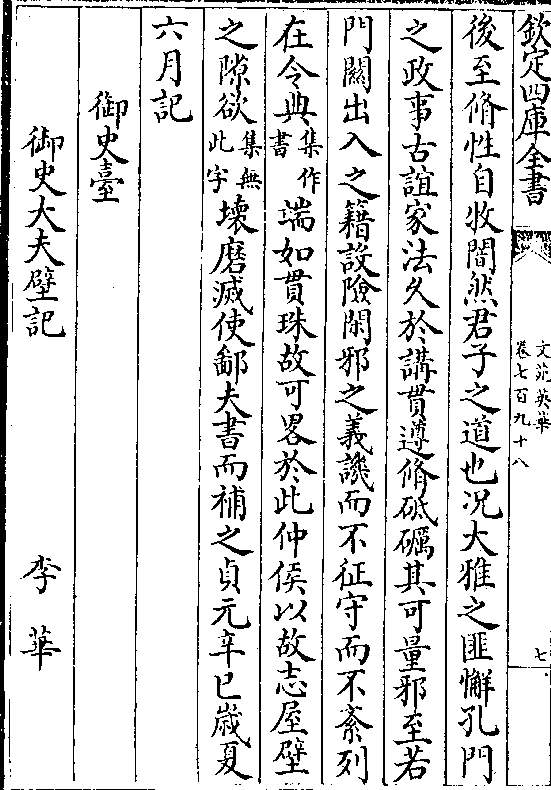 欽定四庫全書
文苑英華
卷七百九十八
七
後至脩性自牧闇然君子之道也况大雅之匪懈孔門
之政事古誼家法久於講貫遵脩砥礪其可量邪至若
門闗出入之籍設險閑邪之義譏而不征守而不紊列
在令典集作書端如貫珠故可畧於此仲侯以故志屋壁
之隙欲集無此字壊磨滅使鄙夫書而補之貞元辛巳嵗夏
六月記
御史臺
御史大夫壁記 李華